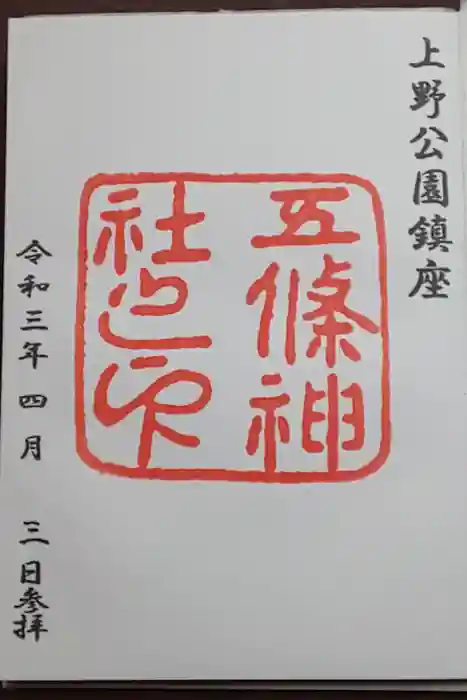 上野公園鎮座
五條神
社之印
令和三年四月三日参拝